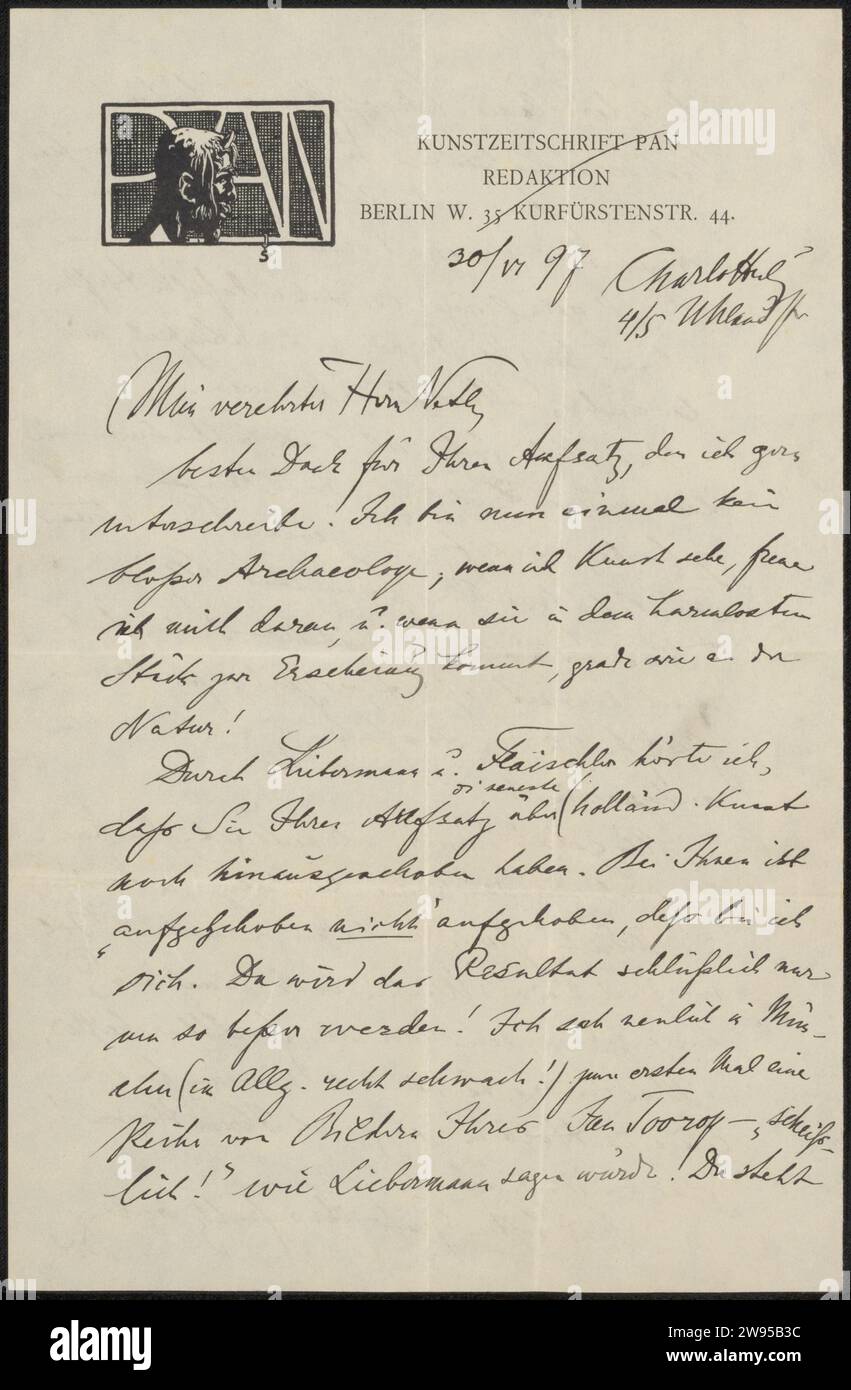 PAN
KUNSTZEITSCHRIFT PAN
REDAKTION
BERLIN W. 35 KURFÜRSTENSTR. 44.
S
30/VI 97
4/5 Uhland str
Mein verehrter Herr Veth,
besten Dank für Ihren Aufsatz, den ich gern
unterschreibe. Ich bin nun einmal kein
bloßer Archaeologe; wenn ich Kunst sehe, freue
ich mich daran, u. wenn sie in dem harmlosesten
Stück zur Erscheinung kommt, grade wie in der
Natur!
Durch Liebermann u. Flaischlen hörte ich,
daß Sie Ihren Aufsatz über (holländ. Kunst
noch hinausgeschoben haben. Bei Ihnen ist
"aufgeschoben nicht" aufgehoben, deß bin ich
sich. Da wird das Resultat schließlich nur
um so beßer werden! Ich sah neulich in Mün-
chen (im Allg. recht schwach!) zum ersten Mal eine
Reihe von Bildern Ihres Jan Toorop – "scheuß-
lich!" wie Liebermann sagen würde! Da steht
alamy
alamy
Image ID: 2W95B3C
www.alamy.com